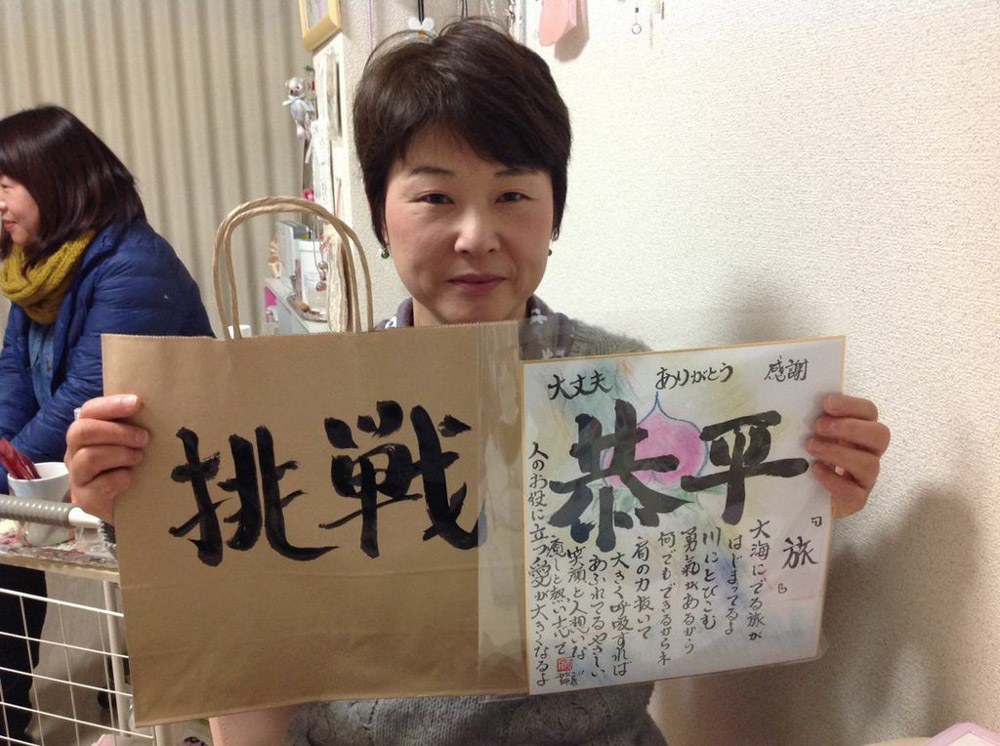 挑戦
大丈夫 ありがとう 感謝
恭平
『旅』
大海にでる旅が
はじまってるよ
川にとびこむ
勇氣があるから
何でもできるからネ
肩の力抜いて
大きく呼吸すれば
あふれてるやさしい
笑顔と人想いな
癒しと熱い志で
人のお役に立つ愛が大きくなるよ